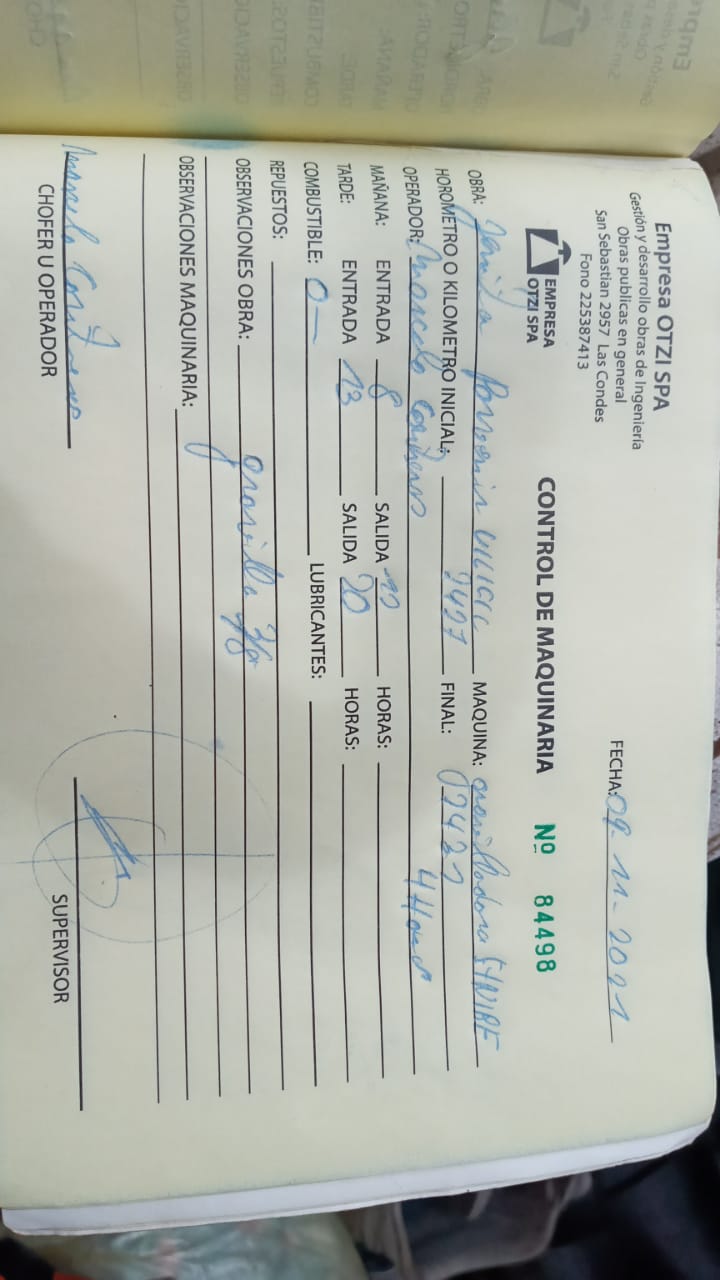 Empresa OTZI SPA
Gestión y desarrollo obras de Ingeniería
Obras publicas en general
San Sebastian 2957 Las Condes
Fono 225387413
FECHA: 09-11-2021
EMPRESA
OTZI SPA
CONTROL DE MAQUINARIA Nº 84498
OBRA: Porvenir MAQUINA: gravilladora
HOROMETRO O KILOMETRO INICIAL: 2427 FINAL: 02431
OPERADOR: Marcelo Contreras 4 Horas
MAÑANA: ENTRADA 8 SALIDA 12 HORAS:
TARDE: ENTRADA 13 SALIDA 20 HORAS:
COMBUSTIBLE: 0— LUBRICANTES:
REPUESTOS:
OBSERVACIONES OBRA: gravilla 3/8
OBSERVACIONES MAQUINARIA:
Marcelo Contreras
CHOFER U OPERADOR SUPERVISOR